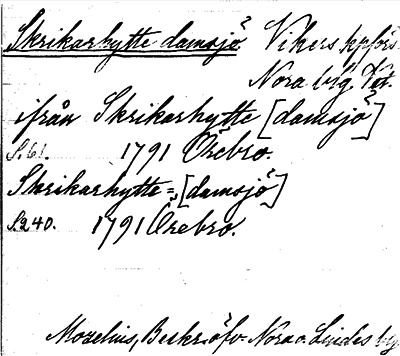 Skrikarhytte damsjö. Vikers kpförs.
Nora brg. Vst.
ifrån Skrikarhytte [damsjö]
S. 61. 1791 Örebro.
Skrikarhytte=[damsjö]
S. 240. 1791 Örebro.
Mozelius, Beskr. öfv. Nora o. Lindes brg